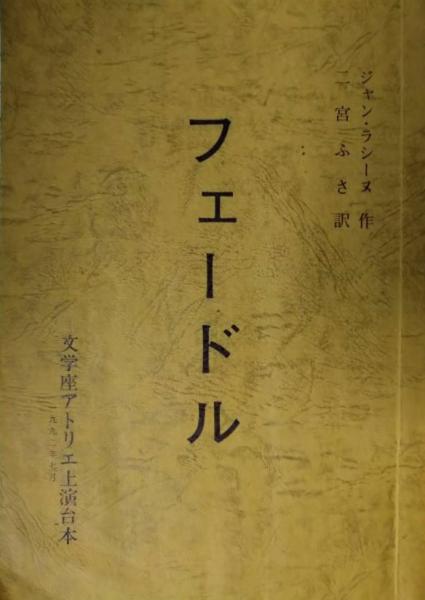 ジャン・ラシーヌ 作
二宮ふさ 訳
フェードル
文学座アトリエ上演台本
一九九二年七月